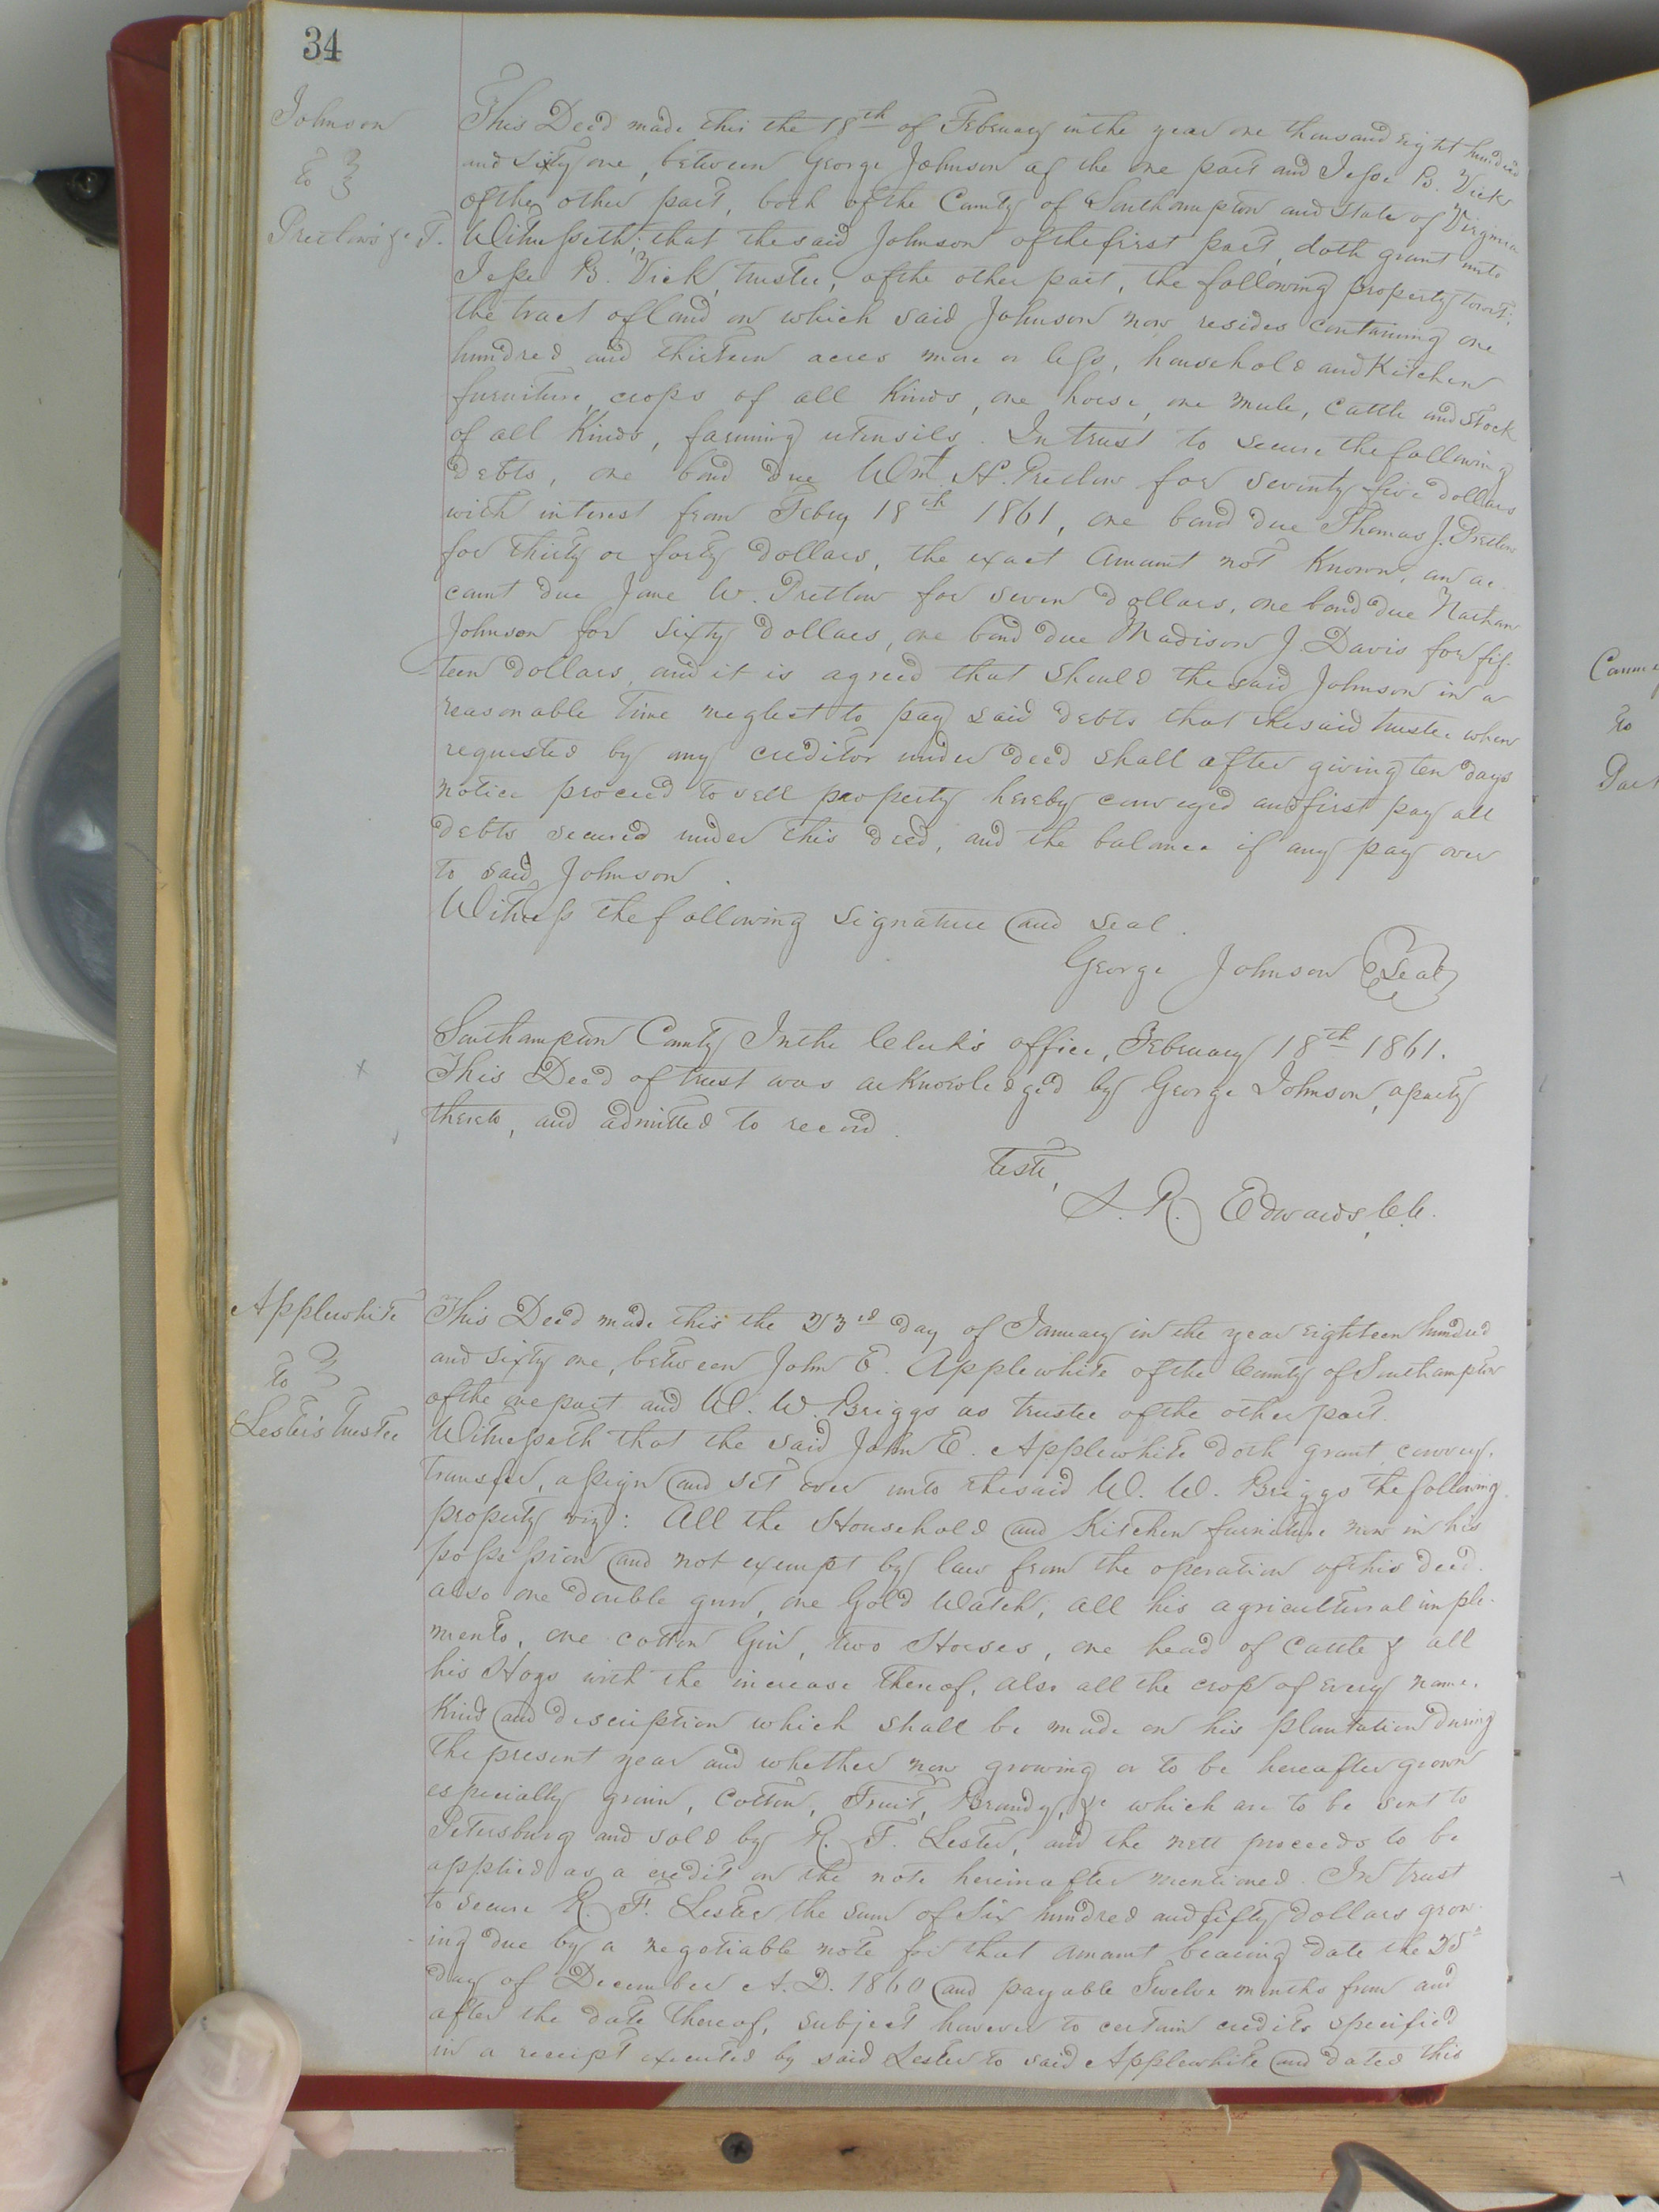 34
Johnson
to
Pretlow's &c T.
This Deed made this the 18th of February in the year one thousand eight hundred
and sixty one, between George Johnson of the one part and Jesse B. Vick
of the other part, both of the County of Southampton and State of Virginia
Witnesseth; that the said Johnson of the first part, doth grant unto
Jesse B. Vick, trustee, of the other part, the following property towit:
the tract of land on which said Johnson now resides containing one
hundred and thirteen acres more or less, household and Kitchen
furniture, crops of all Kinds, one horse, one mule, cattle and stock
of all Kinds, farming utensils. In trust to secure the following
debts, one bond due Wm. H. Pretlow for seventy five dollars
with interest from Feby 18th 1861, one bond due Thomas J. Pretlow
for thirty or forty dollars, the exact amount not Known, an ac-
count due Jane W. Pretlow for seven dollars, one bond due Nathan
Johnson for sixty dollars, one bond due Madison J. Davis for fif-
teen dollars, and it is agreed that should the said Johnson in a
reasonable time neglect to pay said debts that the said trustee when
requested by any creditor under deed shall after giving ten days
notice proceed to sell property hereby conveyed and first pay all
debts secured under this deed, and the balance if any pay over
to said Johnson.
Witness the following signature and seal.
George Johnson Seal
Southampton County In the Clerk's office, February 18th 1861.
This Deed of trust was acknowledged by George Johnson, a party
thereto, and admitted to record.
Teste,
L. R. Edwards, C.C.
Applewhite
to
Lester's trustee
This Deed made this the 23rd day of January in the year eighteen hundred
and sixty one, between John E. Applewhite of the County of Southampton
of the one part and W. W. Briggs as trustee of the other part.
Witnesseth that the said John E. Applewhite doth grant, convey,
transfer, assign and set over unto the said W. W. Briggs the following
property viz: All the Household and Kitchen furniture now in his
possession and not exempt by law from the operation of this deed.
also one double gun, one Gold Watch, all his agricultural imple-
ments, one cotton Gin, two Horses, one head of Cattle & all
his Hogs with the increase thereof, also all the crop of every name,
Kind and description which shall be made on his plantation during
the present year and whether now growing or to be hereafter grown
especially grain, Cotton, Fruit, Brandy, &c which are to be sent to
Petersburg and sold by R. F. Lester, and the nett proceeds to be
applied as a credit on the note hereinafter mentioned. In trust
to secure R. F. Lester the sum of Six hundred and fifty dollars grow-
ing due by a negotiable note for that amount bearing date the
day of December A.D. 1860 and payable Twelve months from and
after the date thereof, subject however to certain credits specified
in a receipt executed by said Lester to said Applewhite and dated this
to